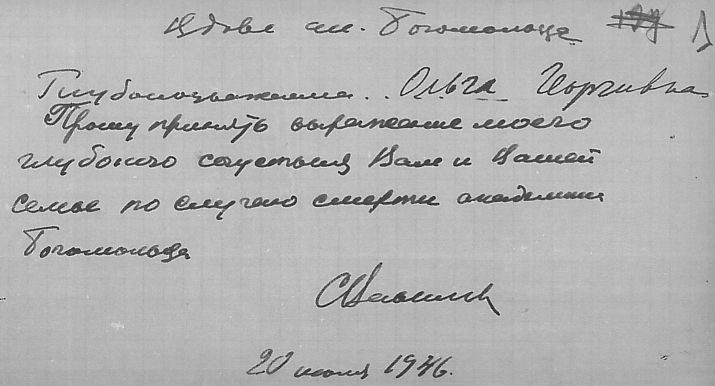 Вдове ак. Богомольца
Глубокоуважаемая.. Ольга Георгивна
Прошу принять выражение моего
глубокого сочуствия Вам и Вашей
семье по случаю смерти академика
Богомольца
20 июля 1946.